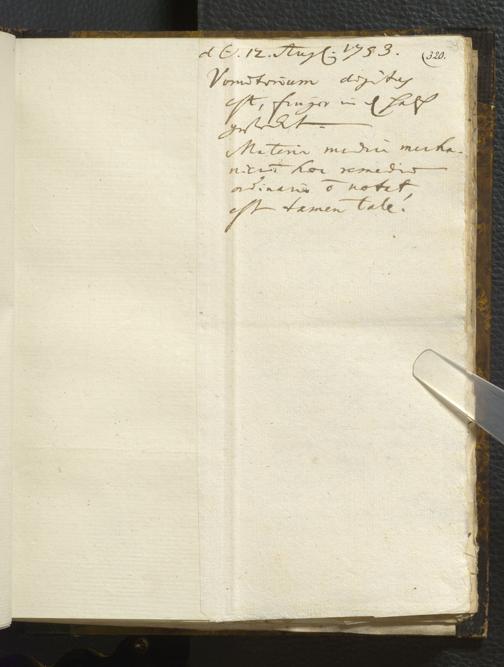 d 12. Aug. 1793.
320.
Vomitorium digitus
est, finger in Hals
gesteckt.
Materia medica mecha-
nicis hoc remedio
ordinario ō notat
est tamen tale!